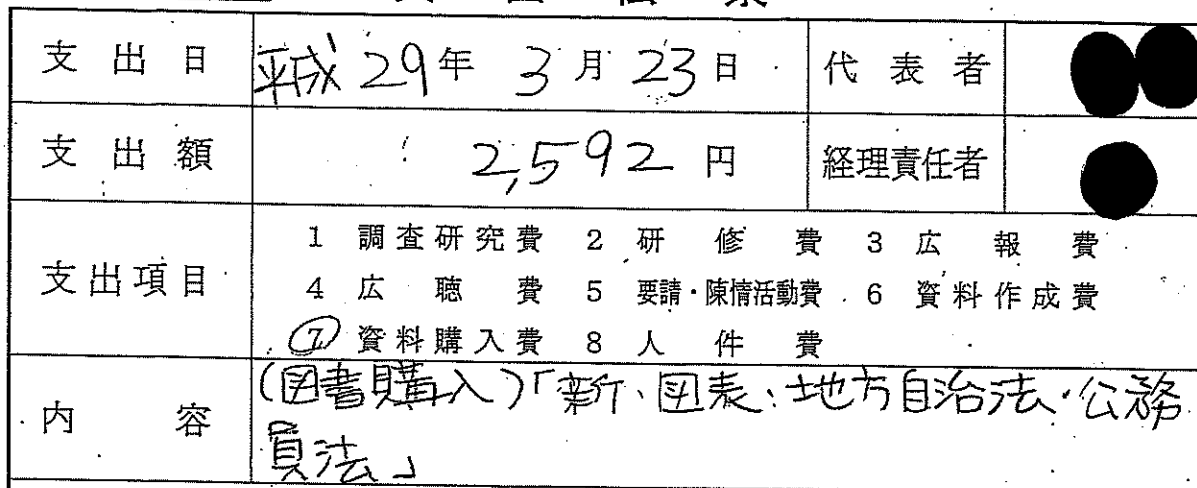 支出日 平成29年 3月23日 代表者
支出額 2,592円 経理責任者
支出項目
1 調査研究費 2 研修費 3 広報費
4 広聴費 5 要請・陳情活動費 6 資料作成費
7 資料購入費 8 人件費
内容
(図書購入)「新、図表:地方自治法・公務
員法」